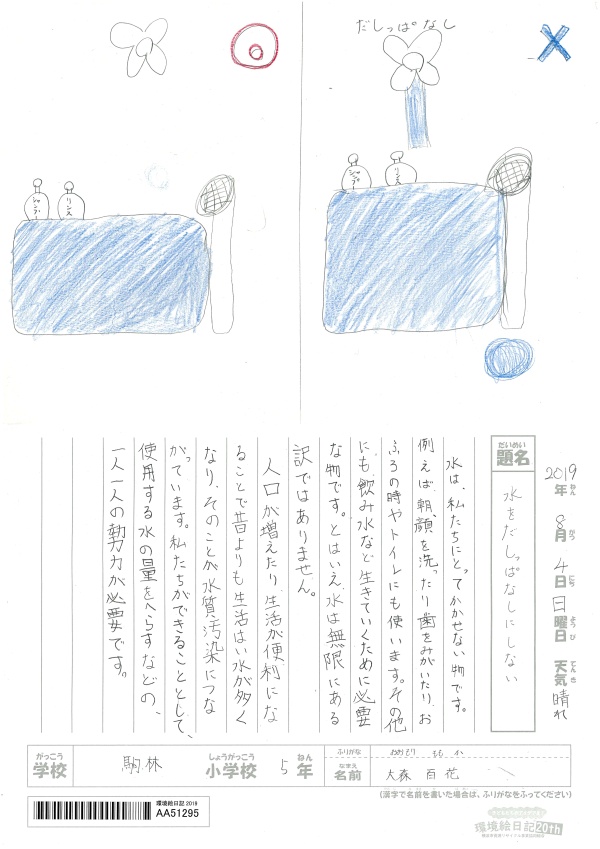 だしっぱなし
シャンプー
リンス
シャンプー
リンス
2019年ねん 8月がつ 4日にち 日曜日ようび 天気てんき 晴れ
だいめい
題名
水をだしっぱなしにしない
水は、私たちにとってかかせない物です。
例えば、朝、顔を洗ったり歯をみがいたり、お
ふろの時やトイレにも使います。その他
にも、飲み水など生きていくために必要
な物です。とはいえ、水は無限にある
訳ではありません。
人口が増えたり、生活が便利にな
ることで昔よりも生活はい水が多く
なり、そのことが水質汚染につな
がっています。私たちができることとして、
使用する水の量をへらすなどの、
一人一人の努力が必要です。
がっこう しょうがっこう ねん
学校 駒林 小学校 5年
ふりがな おおもり ももか
なまえ
名前 大森 百花
(漢字で名前を書いた場合は、ふりがなをふってください)
環境絵日記 2019
AA51295
環境絵日記20th